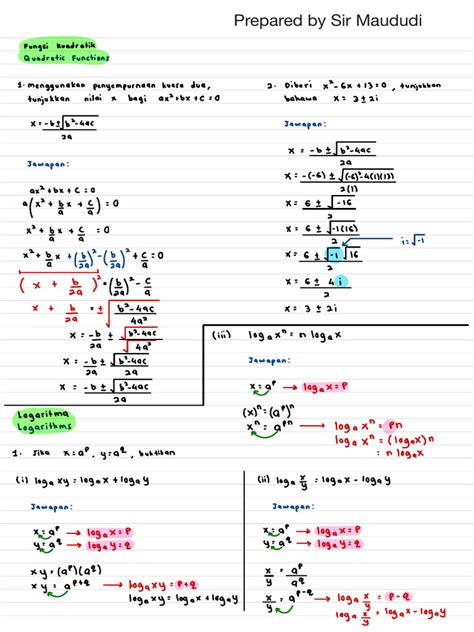 Prepared by Sir Maududi
Fungsi Kuadratik
Quadratic Functions
1. menggunakan penyempurnaan kuasa dua,
tunjukkan nilai x bagi ax²+bx+c=0
x = -b±√(b²-4ac) / 2a
Jawapan:
ax²+bx+c=0
a(x² + b/a x + c/a) = 0
x² + b/a x + c/a = 0
x² + b/a x + (b/2a)² - (b/2a)² + c/a = 0
(x + b/2a)² = (b/2a)² - c/a
x + b/2a = ±√((b²-4ac)/4a²)
x = -b/2a ± √(b²-4ac) / √(4a²)
x = -b/2a ± √(b²-4ac) / 2a
x = -b ± √(b²-4ac) / 2a
2. Diberi x²-6x+13=0, tunjukkan
bahawa x = 3±2i
Jawapan:
x = -b ± √(b²-4ac) / 2a
x = -(-6) ± √((-6)²-4(1)(13)) / 2(1)
x = 6 ± √(-16) / 2
x = 6 ± √(-1(16)) / 2
i=√-1
x = 6 ± √-1 √16 / 2
x = 6 ± 4i / 2
x = 3 ± 2i
(iii) logₐ xⁿ = n logₐ x
Jawapan:
x = aᵖ → logₐ x = p
(x)ⁿ = (aᵖ)ⁿ
xⁿ = aᵖⁿ → logₐ xⁿ = pn
logₐ xⁿ = (logₐ x)n
= n logₐ x
Logaritma
Logarithms
1. Jika x=aᵖ, y=a^q, buktikan
(i) logₐ xy = logₐ x + logₐ y
Jawapan:
x = aᵖ → logₐ x = p
y = a^q → logₐ y = q
xy = (aᵖ)(a^q)
xy = a^(p+q) → logₐ xy = p+q
logₐ xy = logₐ x + logₐ y
(ii) logₐ x/y = logₐ x - logₐ y
Jawapan:
x = aᵖ → logₐ x = p
y = a^q → logₐ y = q
x/y = aᵖ/a^q
x/y = a^(p-q) → logₐ x/y = p - q
logₐ x/y = logₐ x - logₐ y